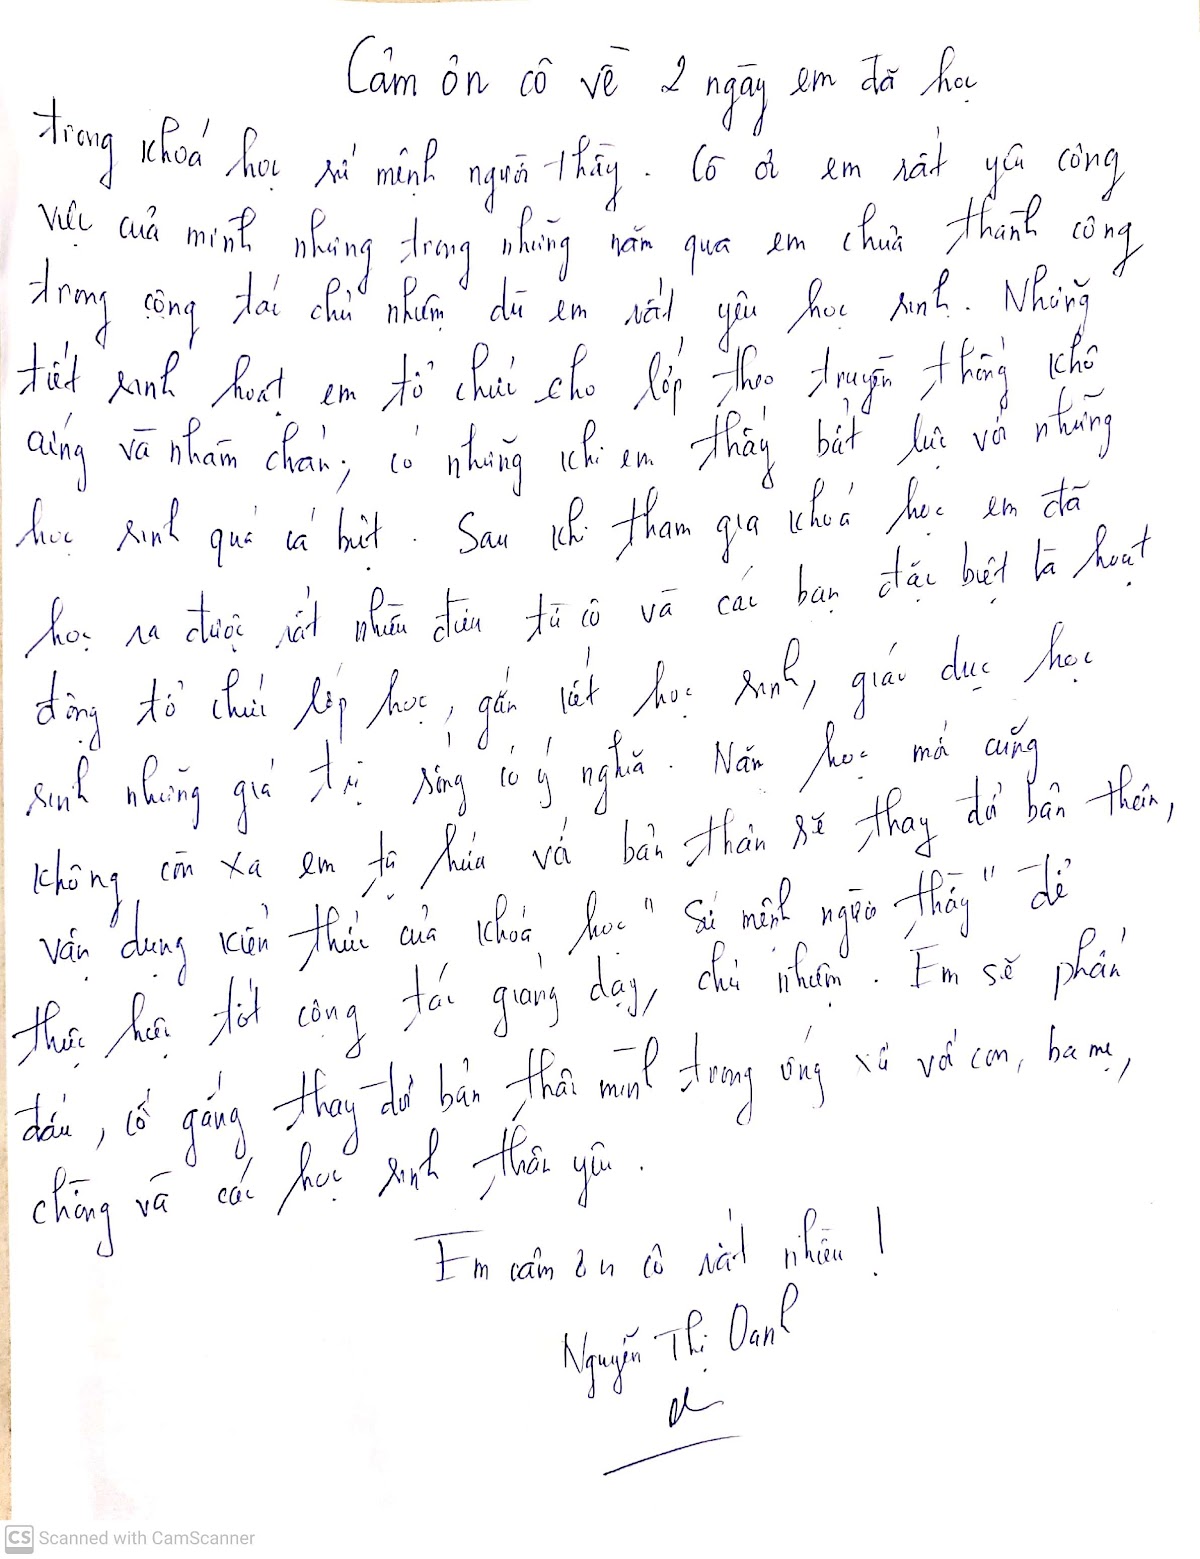 Cảm ơn cô về 2 ngày em đã học
trong khoá học sứ mệnh người thầy. Cô ơi em rất yêu công
việc của mình nhưng trong những năm qua em chưa thành công
trong công tác chủ nhiệm dù em rất yêu học sinh. Những
tiết sinh hoạt em tổ chức cho lớp theo truyền thống khô
cứng và nhàm chán, có những khi em thấy bất lực với những
học sinh quá cá biệt. Sau khi tham gia khoá học em đã
học ra được rất nhiều điều từ cô và các bạn đặc biệt là hoạt
động tổ chức lớp học, gắn kết học sinh, giáo dục học
sinh những giá trị sống có ý nghĩa. Năm học mới cũng
không còn xa em tự hứa với bản thân sẽ thay đổi bản thân,
vận dụng kiến thức của khoá học "Sứ mệnh người thầy" để
thực hiện tốt công tác giảng dạy, chủ nhiệm. Em sẽ phấn
đấu, cố gắng thay đổi bản thân mình trong ứng xử với con, ba mẹ,
chồng và các học sinh thân yêu.
Em cảm ơn cô rất nhiều!
Nguyễn Thị Oanh
CS Scanned with CamScanner